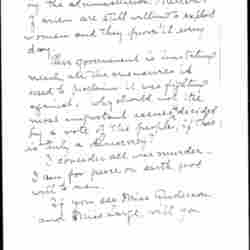 by the administration.
I men are still willing to exploit
women and they prove it every
day.
This government is instituting
nearly all the measures it
used to proclaim it was fighting
against. Why should not the
most important issues decided
by a vote of the people, if this
is truly a democracy?
I consider all war murder.
I am for peace on earth good
will to men.
If you see Miss Anderson
and Miss will you